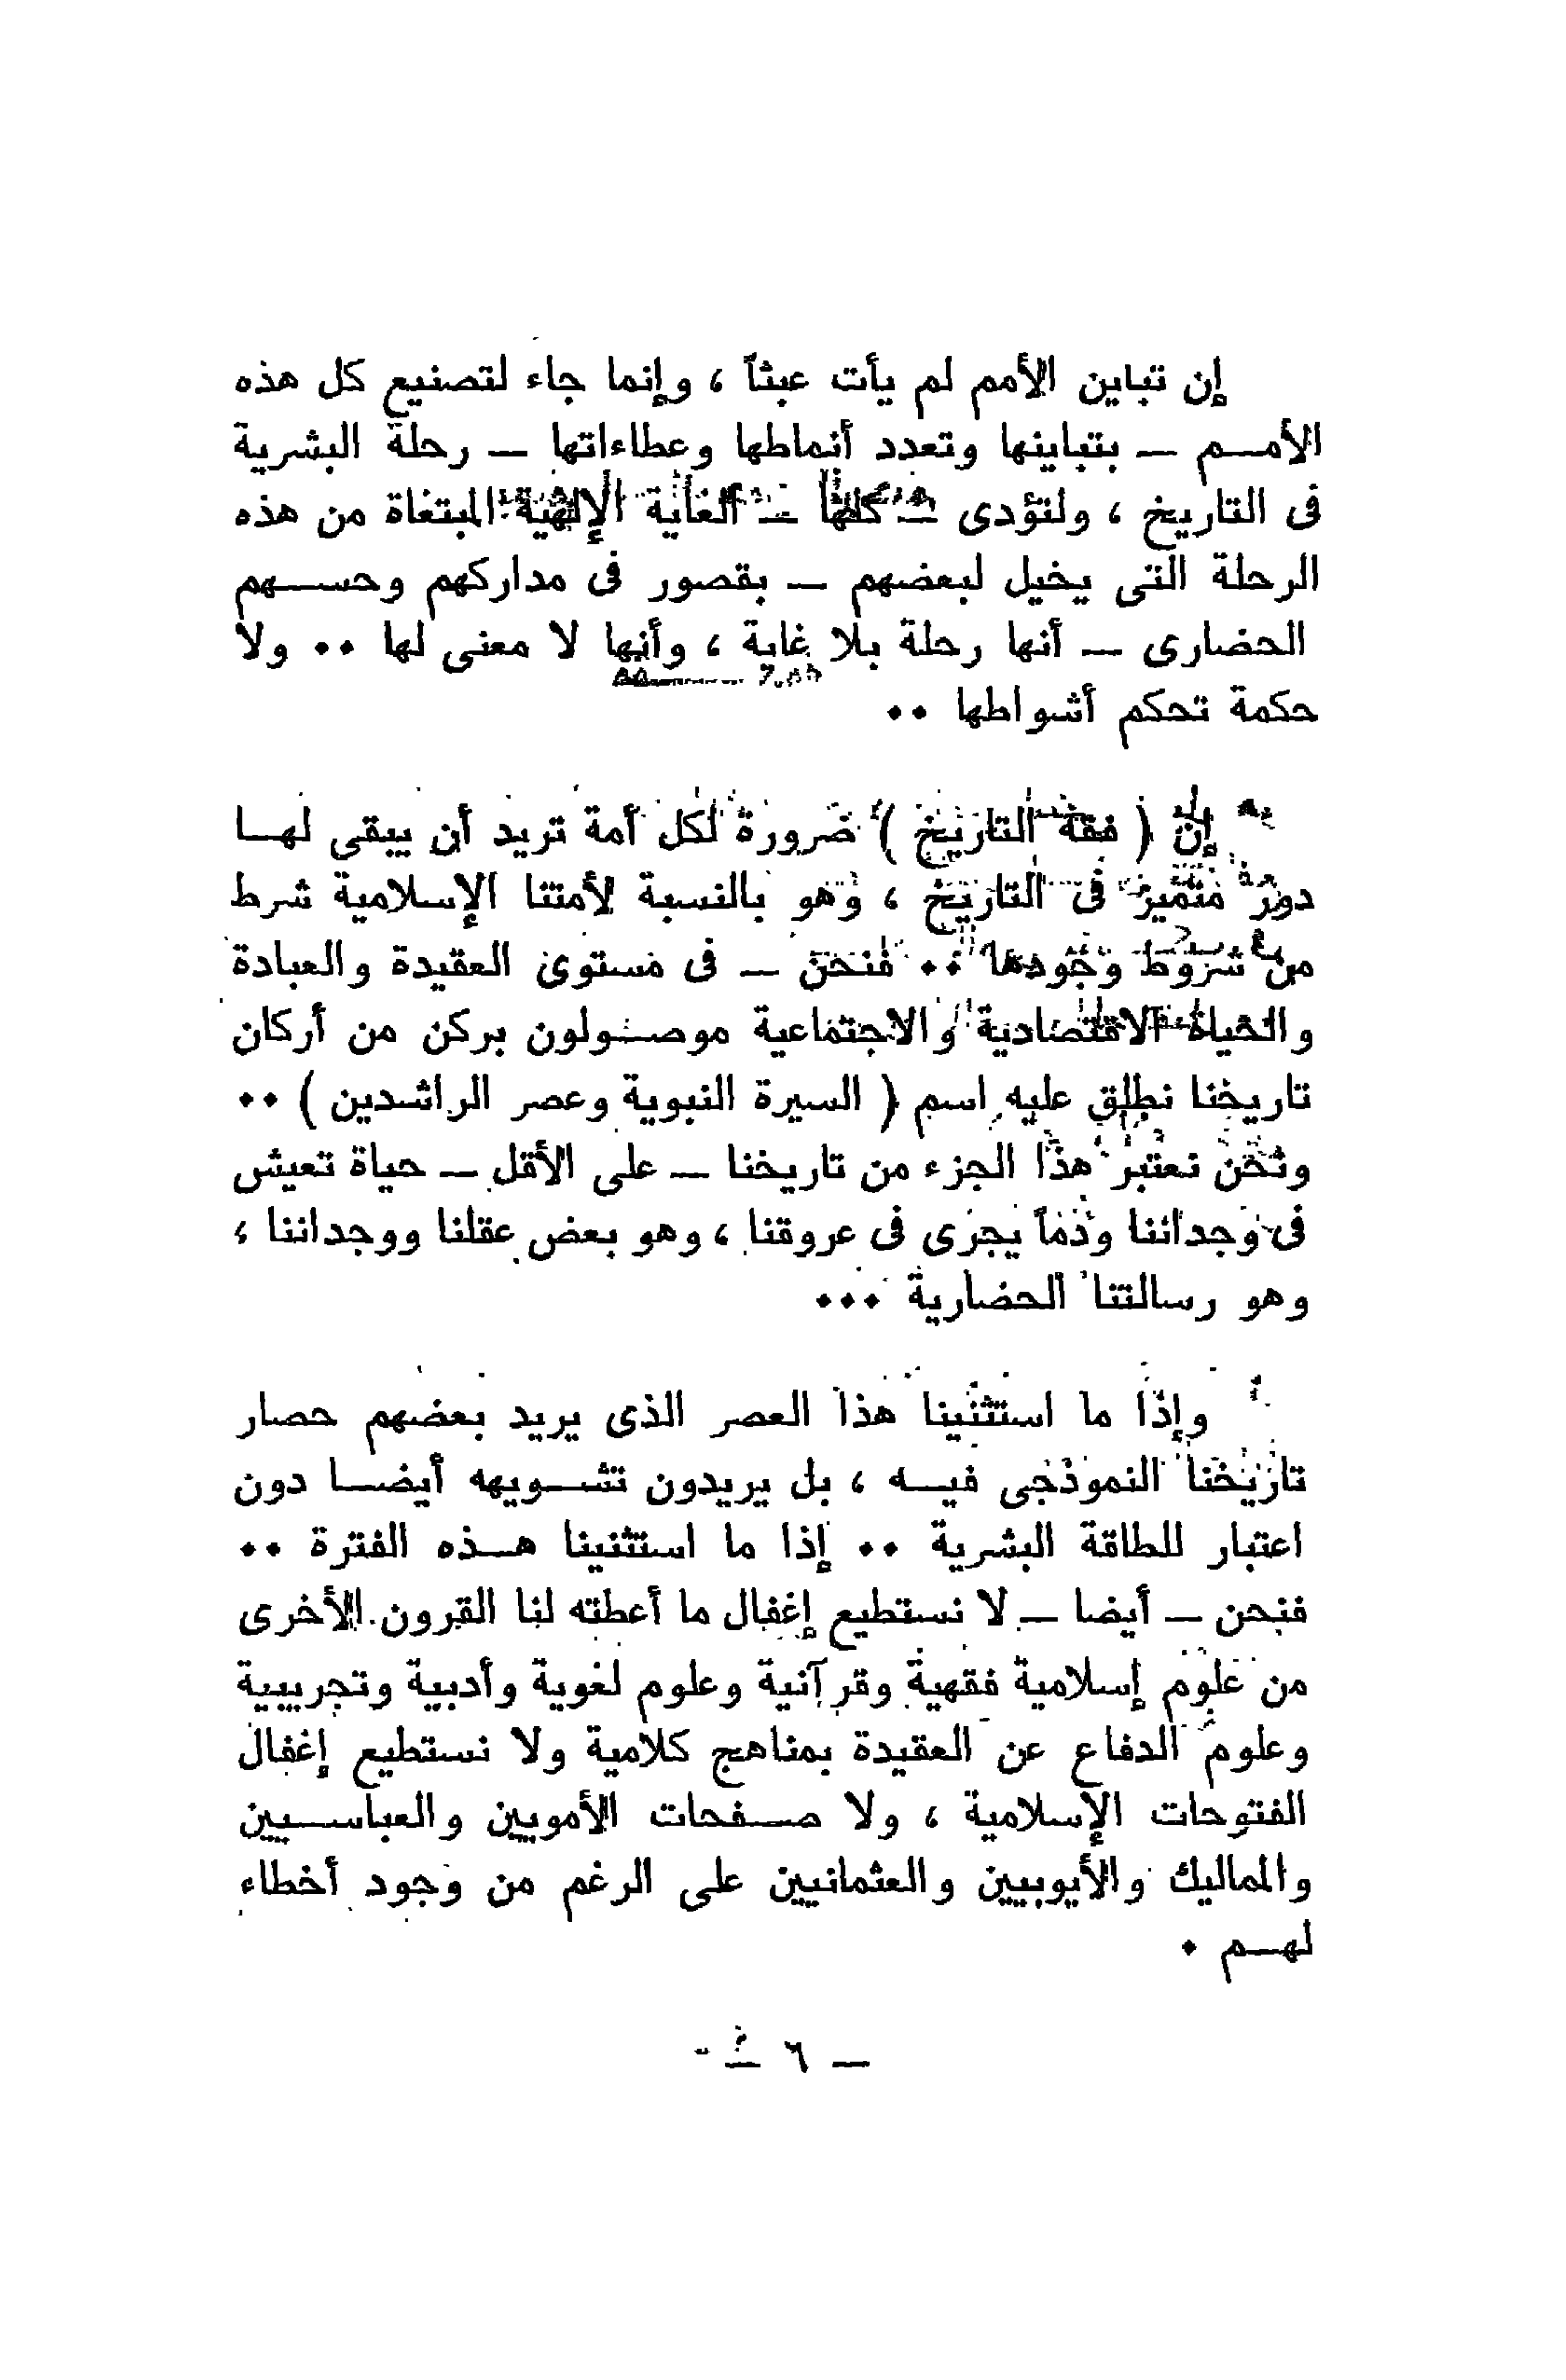 إن تباين الأمم لم يأت عبثاً ، وإنما جاء لتصنيع كل هذه
الأمـم — بتباينها وتعدد أنماطها وعطاءاتها — رحلة البشرية
فى التاريخ ، ولتؤدى — كلها — الغاية الإلهية المبتغاة من هذه
الرحلة التى يخيل لبعضهم — بقصور فى مداركهم وحســهم
الحضارى — أنها رحلة بلا غاية ، وأنها لا معنى لها ٠٠ ولا
حكمة تحكم أشواطها ٠٠
إن ( فقه التاريخ ) ضرورة لكل أمة تريد أن يبقى لهــا
دور متميز فى التاريخ ، وهو بالنسبة لأمتنا الإسلامية شرط
من شروط وجودها ٠٠ فنحن — فى مستوى العقيدة والعبادة
والحياة الاقتصادية والاجتماعية موصـولون بركن من أركان
تاريخنا نطلق عليه اسم ( السيرة النبوية وعصر الراشدين ) ٠٠
ونحن نعتبر هذا الجزء من تاريخنا — على الأقل — حياة تعيش
فى وجداننا ودماً يجرى فى عروقنا ، وهو بعض عقلنا ووجداننا ،
وهو رسالتنا الحضارية ٠٠٠
وإذا ما استثنينا هذا العصر الذى يريد بعضهم حصار
تاريخنا النموذجى فيـه ، بل يريدون تشـويهه أيضـا دون
اعتبار للطاقة البشرية ٠٠ إذا ما استثنينا هـذه الفترة ٠٠
فنحن — أيضا — لا نستطيع إغفال ما أعطته لنا القرون الأخرى
من علوم إسلامية فقهية وقرآنية وعلوم لغوية وأدبية وتجريبية
وعلوم الدفاع عن العقيدة بمناهج كلامية ولا نستطيع إغفال
الفتوحات الإسلامية ، ولا صـفحات الأمويين والعباسـيين
والمماليك والأيوبيين والعثمانيين على الرغم من وجود أخطاء
لهـم ٠
— ٦ —